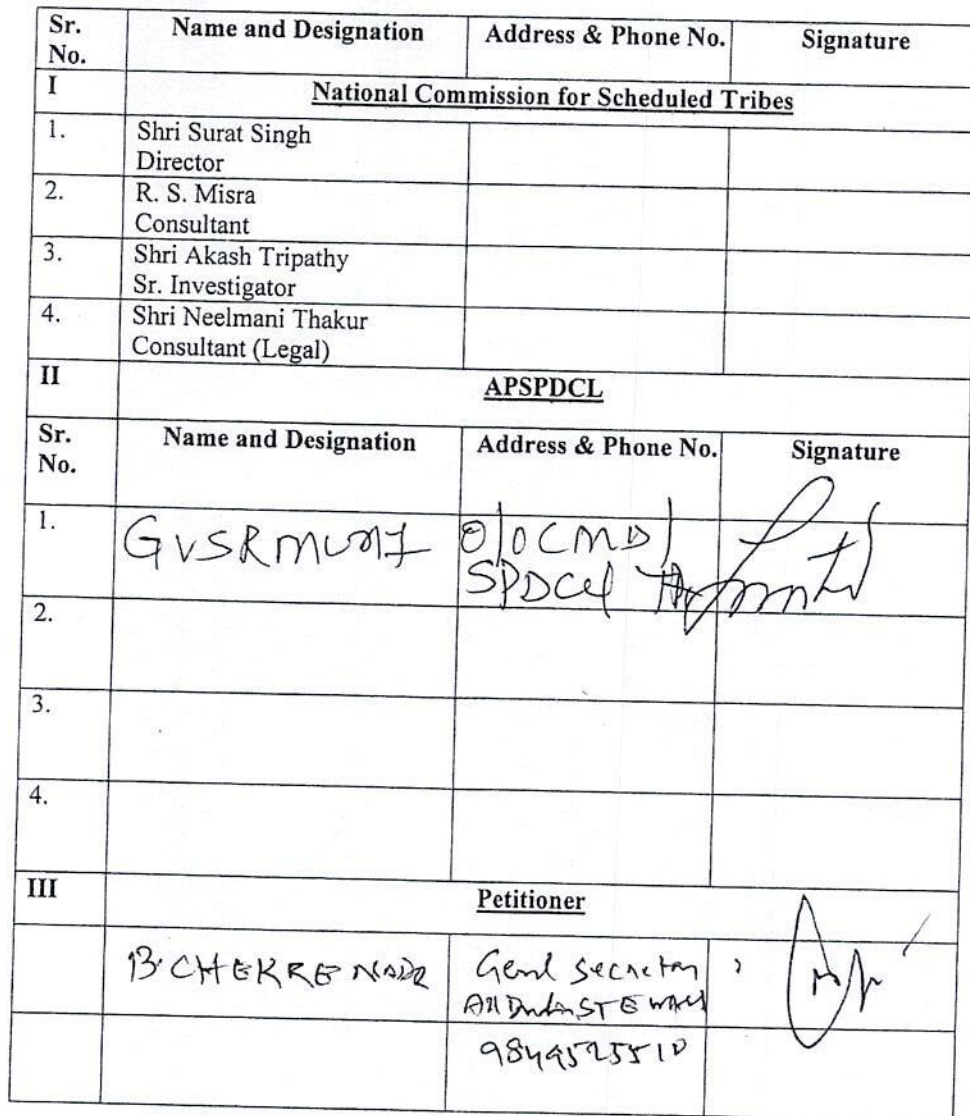 Sr. No.
Name and Designation
Address & Phone No.
Signature
I
National Commission for Scheduled Tribes
1.
Shri Surat Singh
Director
2.
R. S. Misra
Consultant
3.
Shri Akash Tripathy
Sr. Investigator
4.
Shri Neelmani Thakur
Consultant (Legal)
II
APSPDCL
Sr. No.
Name and Designation
Address & Phone No.
Signature
1.
GVSR
O/o CMD/
SPDCL
2.
3.
4.
III
Petitioner
B.
Secretary